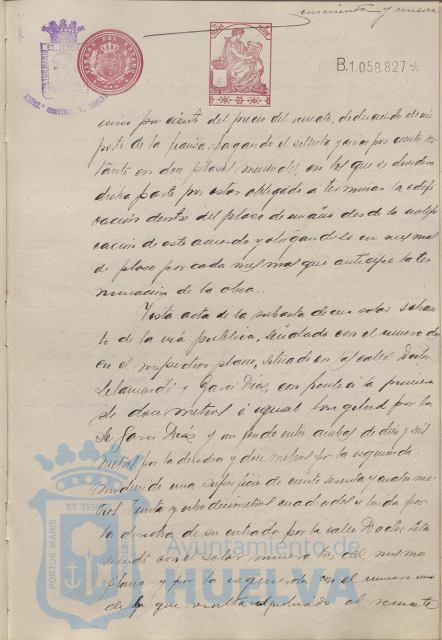 cincuenta y nueve
PORTUS MARIS ET TERRAE
B.1.058.827*
cinco por ciento del precio del remate, deduciendo de im
porte de la fianza, pagando el setenta y cinco por ciento res
tante en doce plazos mensuales, en los que se dividirá
dicha parte por estar obligado a terminar la edifi
cación dentro del plazo de un año desde la notifi
cación de este acuerdo y otorgándole un mes mas
de plazo por cada mes mas que anticipe la ter
minación de la obra..
Vista acta de la subasta de un solar sobran
te de la vía publica, señalado con el numero dos
en el respectivo plano, situado en las calles Doctor
Letamendi y Garci Díaz, con frente a la primera
de doce metros e igual longitud por la
de Garci Díaz y un fondo entre ambas de diez y seis
metros por la derecha y doce metros por la izquierda.
midiendo una superficie de ciento sesenta y cuatro me
tros treinta y ocho decímetros cuadrados y linda por
la derecha de su entrada por la calle Doctor Leta
mendi con el solar numero tres del mismo
plano y por la izquierda con el numero uno
de lo que resulta adjudicado el remate
PORTUS MARIS ET TERRAE
Ayuntamiento de
HUELVA